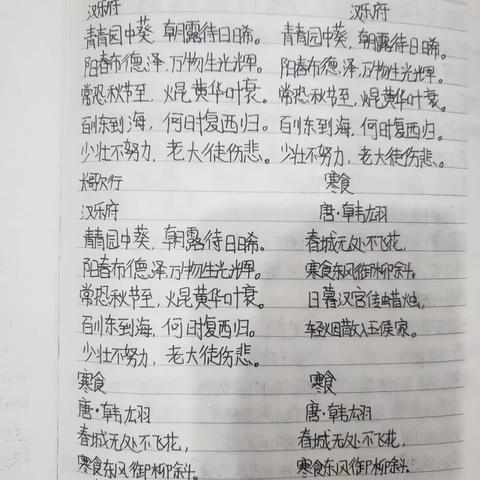 汉乐府
青青园中葵,朝露待日晞。
阳春布德泽,万物生光辉。
常恐秋节至,焜黄华叶衰。
百川东到海,何时复西归。
少壮不努力,老大徒伤悲。
汉乐府
青青园中葵,朝露待日晞。
阳春布德泽,万物生光辉。
常恐秋节至,焜黄华叶衰。
百川东到海,何时复西归。
少壮不努力,老大徒伤悲。
长歌行
汉乐府
青青园中葵,朝露待日晞。
阳春布德泽,万物生光辉。
常恐秋节至,焜黄华叶衰。
百川东到海,何时复西归。
少壮不努力,老大徒伤悲。
寒食
唐·韩翃
春城无处不飞花,
寒食东风御柳斜。
日暮汉宫传蜡烛,
轻烟散入五侯家。
寒食
唐·韩翃
春城无处不飞花,
寒食东风御柳斜。
寒食
唐·韩翃
春城无处不飞花,
寒食东风御柳斜。